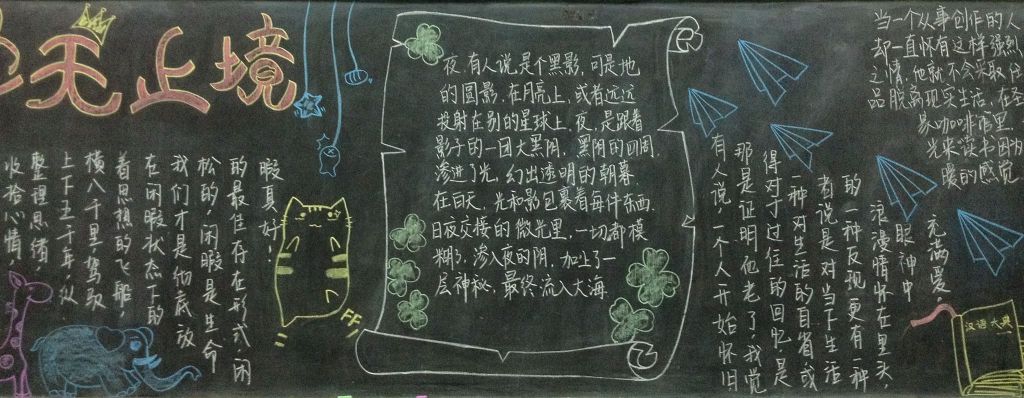 无止境
收拾心情,
整理思绪,
上下五千年,纵
横八千里驾驭
着思想的飞船,
在闲暇状态下的
我们才是彻底放
松的,闲暇是生命
的最佳存在形式闲
暇真好,
FF
夜,有人说是个黑影,可是地
的圆影,在月亮上,或者远远
投射在别的星球上,夜,是跟着
影子的一团大黑阴,黑阴的四周,
渗进了光,幻出透明的朝暮
在白天,光和影包裹着每件东西,
日夜交接的微光里,一切都模
糊了,渗入夜的阴,加上了一
层神秘,最终流入大海
有人说,一个人开始怀旧
那是证明他老了,我觉
得对于过往的回忆是
一种对生活的自省或
者说是对当下生活
的一种反现更有一种
浪漫情怀在里头,
眼神中
充满爱,
当一个从事创作的人
却一直怀有这样强烈
之情,他就不会采取任
品脱离现实生活,在圣
易咖啡店里,
光来读书因为
暖的感觉
汉语大典